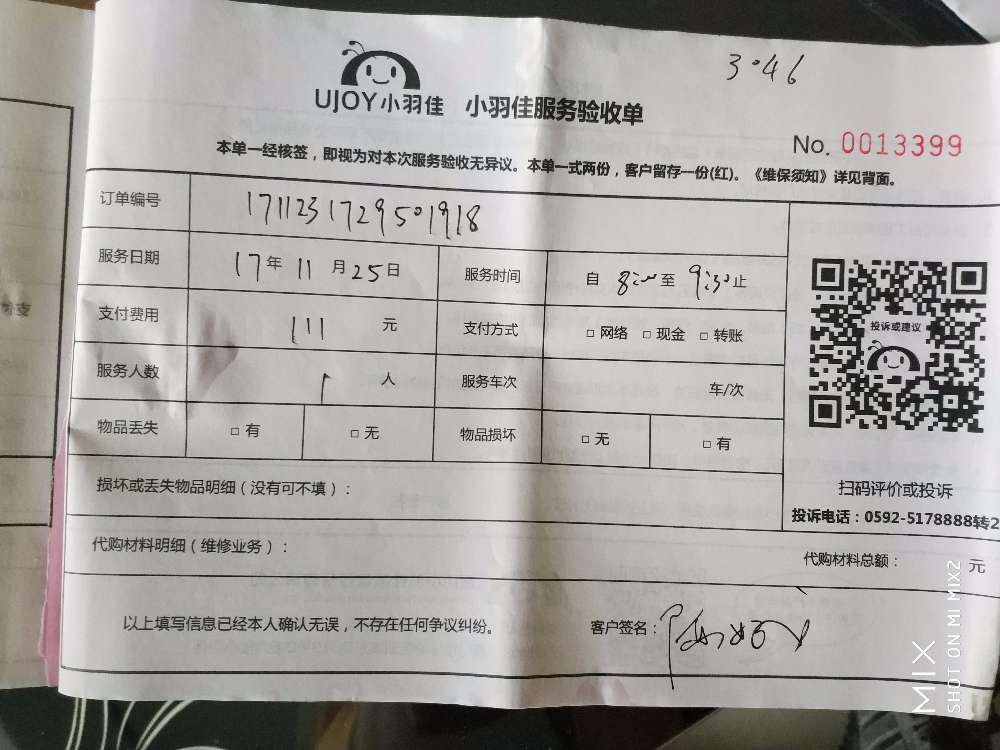 3·46
UJOY小羽佳 小羽佳服务验收单
No. 0013399
本单一经核签，即视为对本次服务验收无异议。本单一式两份，客户留存一份(红)。《维保须知》详见背面。
订单编号 1711231729501918
服务日期 17年11月25日 服务时间 自8:00至9:30止
支付费用 111 元 支付方式 □ 网络 □ 现金 □ 转账
服务人数 1 人 服务车次 车/次
物品丢失 □ 有 □ 无 物品损坏 □ 无 □ 有
投诉或建议
扫码评价或投诉
投诉电话：0592-5178888转2
损坏或丢失物品明细（没有可不填）：
代购材料明细（维修业务）： 代购材料总额： 元
以上填写信息已经本人确认无误，不存在任何争议纠纷。 客户签名：
MIX
SHOT ON MI MIX2